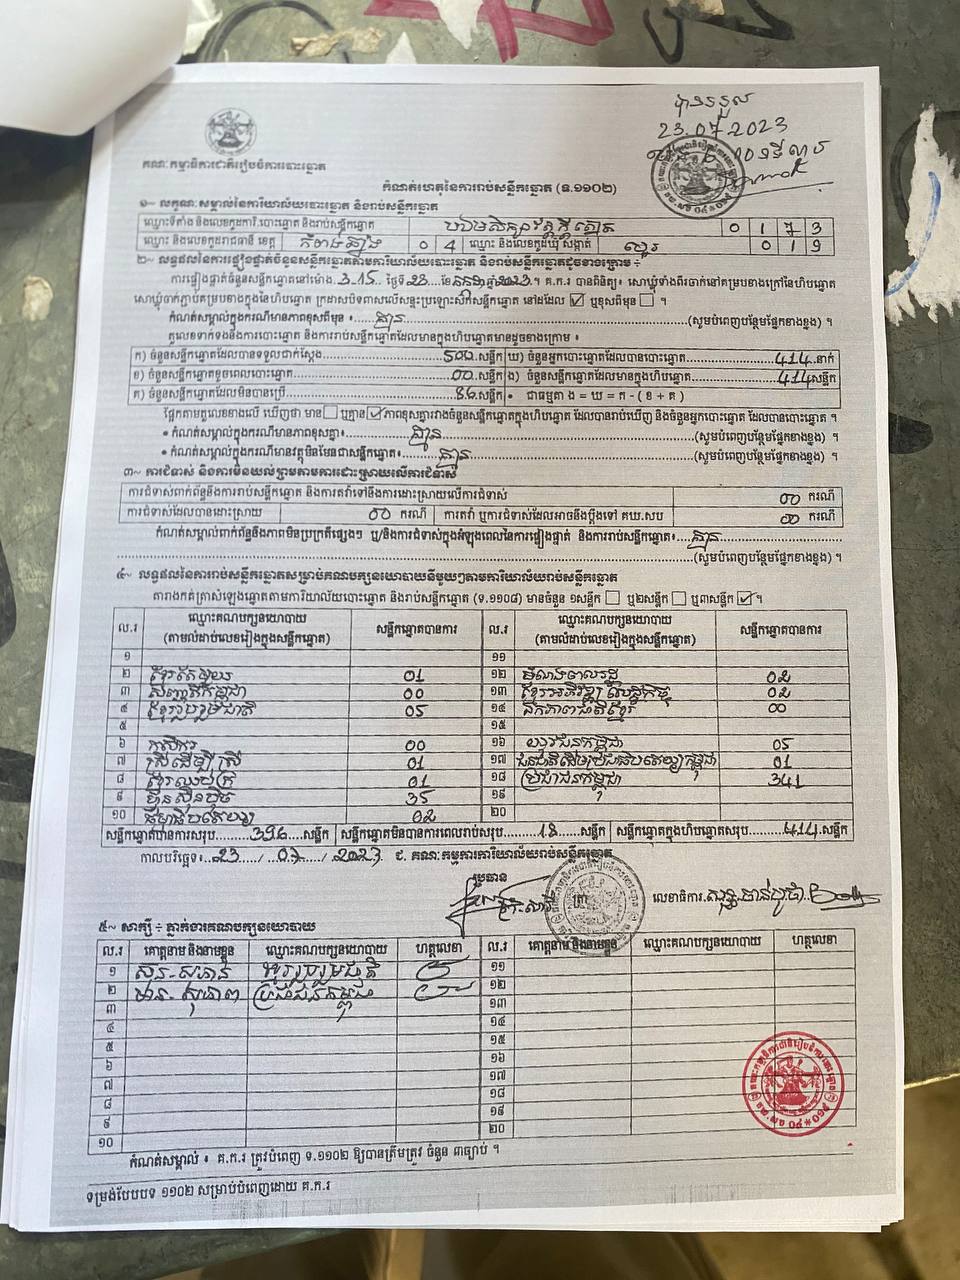 បានទទួល
23.07.2023
គណៈកម្មាធិការជាតិរៀបចំការបោះឆ្នោត
កំណត់ហេតុនៃការរាប់សន្លឹកឆ្នោត (ទ.១១០២)
១~ លក្ខណៈសម្គាល់នៃការិយាល័យបោះឆ្នោត និងរាប់សន្លឹកឆ្នោត
ឈ្មោះទីតាំង និងលេខកូដការិ.បោះឆ្នោត និងរាប់សន្លឹកឆ្នោត 0 1 7 3
ឈ្មោះ និងលេខកូដរាជធានី ខេត្ត កំពង់ឆ្នាំង 0 4 ឈ្មោះ និងលេខកូដឃុំ សង្កាត់ 0 1 9
២~ លទ្ធផលនៃការផ្ទៀងផ្ទាត់ចំនួនសន្លឹកឆ្នោតតាមការិយាល័យបោះឆ្នោត និងរាប់សន្លឹកឆ្នោតដូចខាងក្រោម ៖
ការផ្ទៀងផ្ទាត់ចំនួនសន្លឹកឆ្នោតនៅម៉ោង. 3.15 ថ្ងៃទី 23 ខែ កក្កដា ឆ្នាំ 2023 ។ គ.ក.រ បានពិនិត្យ៖ សោឃ្លុំទាំងពីរចាក់នៅគម្របខាងក្រៅនៃហិបឆ្នោត
សោឃ្លុំចាក់ភ្ជាប់គម្របខាងក្នុងនៃហិបឆ្នោត ក្រដាសបិទពាសលើសន្ទះប្រឡោះសុំាសន្លឹកឆ្នោត នៅដដែល ☑ ឬខុសពីមុន ☐ ។
កំណត់សម្គាល់ក្នុងករណីមានភាពខុសពីមុន ៖ គ្មាន (សូមបំពេញបន្ថែមផ្នែកខាងខ្នង) ។
តួលេខទាក់ទងនឹងការបោះឆ្នោត និងការរាប់សន្លឹកឆ្នោតដែលមានក្នុងហិបឆ្នោតមានដូចខាងក្រោម ៖
ក) ចំនួនសន្លឹកឆ្នោតដែលបានទទួលជាក់ស្តែង 500 សន្លឹក ឃ) ចំនួនអ្នកបោះឆ្នោតដែលបានបោះឆ្នោត 414 នាក់
ខ) ចំនួនសន្លឹកឆ្នោតខូចពេលបោះឆ្នោត 00 សន្លឹក ង) ចំនួនសន្លឹកឆ្នោតដែលមានក្នុងហិបឆ្នោត 414 សន្លឹក
គ) ចំនួនសន្លឹកឆ្នោតដែលមិនបានប្រើ 86 សន្លឹក • ជាធម្មតា ង = ឃ = ក - ( ខ + គ )
ផ្អែកតាមតួលេខខាងលើ ឃើញថា មាន ☐ ឬគ្មាន ☑ ភាពខុសគ្នារវាងចំនួនសន្លឹកឆ្នោតក្នុងហិបឆ្នោត ដែលបានរាប់ឃើញ និងចំនួនអ្នកបោះឆ្នោត ដែលបានបោះឆ្នោត ។
• កំណត់សម្គាល់ក្នុងករណីមានភាពខុសគ្នា៖ គ្មាន (សូមបំពេញបន្ថែមផ្នែកខាងខ្នង) ។
• កំណត់សម្គាល់ក្នុងករណីមានវត្ថុមិនមែនជាសន្លឹកឆ្នោត៖ គ្មាន (សូមបំពេញបន្ថែមផ្នែកខាងខ្នង) ។
៣~ ការជំទាស់ និងការមិនយល់ស្របតាមការដោះស្រាយលើការជំទាស់
ការជំទាស់ពាក់ព័ន្ធនឹងការរាប់សន្លឹកឆ្នោត និងការតវ៉ាទៅនឹងការដោះស្រាយលើការជំទាស់ 00 ករណី
ការជំទាស់ដែលបានដោះស្រាយ 00 ករណី ការតវ៉ា ឬការជំទាស់ដែលអាចនឹងប្តឹងទៅ គឃ.សប 00 ករណី
កំណត់សម្គាល់ពាក់ព័ន្ធនឹងភាពមិនប្រក្រតីផ្សេងៗ ឬ/និងការជំទាស់ក្នុងអំឡុងពេលនៃការផ្ទៀងផ្ទាត់ និងការរាប់សន្លឹកឆ្នោត៖ គ្មាន
(សូមបំពេញបន្ថែមផ្នែកខាងខ្នង) ។
៤~ លទ្ធផលនៃការរាប់សន្លឹកឆ្នោតសម្រាប់គណបក្សនយោបាយនីមួយៗតាមការិយាល័យរាប់សន្លឹកឆ្នោត
តារាងកត់ត្រាសំឡេងឆ្នោតតាមការិយាល័យបោះឆ្នោត និងរាប់សន្លឹកឆ្នោត (ទ.១១០៨) មានចំនួន ១សន្លឹក ☐ ឬ២សន្លឹក ☐ ឬ៣សន្លឹក ☑ ។
ល.រ ឈ្មោះគណបក្សនយោបាយ (តាមលំដាប់លេខរៀងក្នុងសន្លឹកឆ្នោត) សន្លឹកឆ្នោតបានការ ល.រ ឈ្មោះគណបក្សនយោបាយ (តាមលំដាប់លេខរៀងក្នុងសន្លឹកឆ្នោត) សន្លឹកឆ្នោតបានការ
១ ១១
២ ខ្មែរតែមួយ 01 ១២ សំណាងពលរដ្ឋ 02
៣ សញ្ជាតិកម្ពុជា 00 ១៣ ខ្មែរអភិវឌ្ឍន៍សេដ្ឋកិច្ច 02
៤ ខ្មែររួបរួមជាតិ 05 ១៤ ឯកភាពជាតិខ្មែរ 00
៥
៦ កសិករ 00 ១៦ យុវជនកម្ពុជា 05
៧ ស្រីដើម្បីស្រី 01 ១៧ ជនជាតិដើមប្រជាធិបតេយ្យកម្ពុជា 01
៨ ខ្មែរឈប់ក្រ 01 ១៨ ប្រជាជនកម្ពុជា 341
៩ ហ៊្វុនស៊ិនប៉ិច 35 ១៩
១០ ធម្មាធិបតេយ្យ 02 20
សន្លឹកឆ្នោតបានការសរុប 396 សន្លឹក សន្លឹកឆ្នោតមិនបានការពេលរាប់សរុប 18 សន្លឹក សន្លឹកឆ្នោតក្នុងហិបឆ្នោតសរុប 414 សន្លឹក
កាលបរិច្ឆេទ៖ 23 / 07 / 2023 ជ. គណៈកម្មការការិយាល័យរាប់សន្លឹកឆ្នោត
ប្រធាន
លេខាធិការ
៥~ សាក្សី ÷ ភ្នាក់ងារគណបក្សនយោបាយ
ល.រ គោត្តនាម និងនាមខ្លួន ឈ្មោះគណបក្សនយោបាយ ហត្ថលេខា ល.រ គោត្តនាម និងនាមខ្លួន ឈ្មោះគណបក្សនយោបាយ ហត្ថលេខា
១ ខ្មែររួបរួមជាតិ ១១
២ ប្រជាជនកម្ពុជា ១២
៣ ១៣
៤ ១៤
៥ ១៥
៦ ១៦
៧ ១៧
៨ ១៨
៩ ១៩
១០ 20
កំណត់សម្គាល់ ៖ គ.ក.រ ត្រូវបំពេញ ទ.១១០២ ឱ្យបានត្រឹមត្រូវ ចំនួន ៣ច្បាប់ ។
ទម្រង់បែបបទ ១១០២ សម្រាប់បំពេញដោយ គ.ក.រ